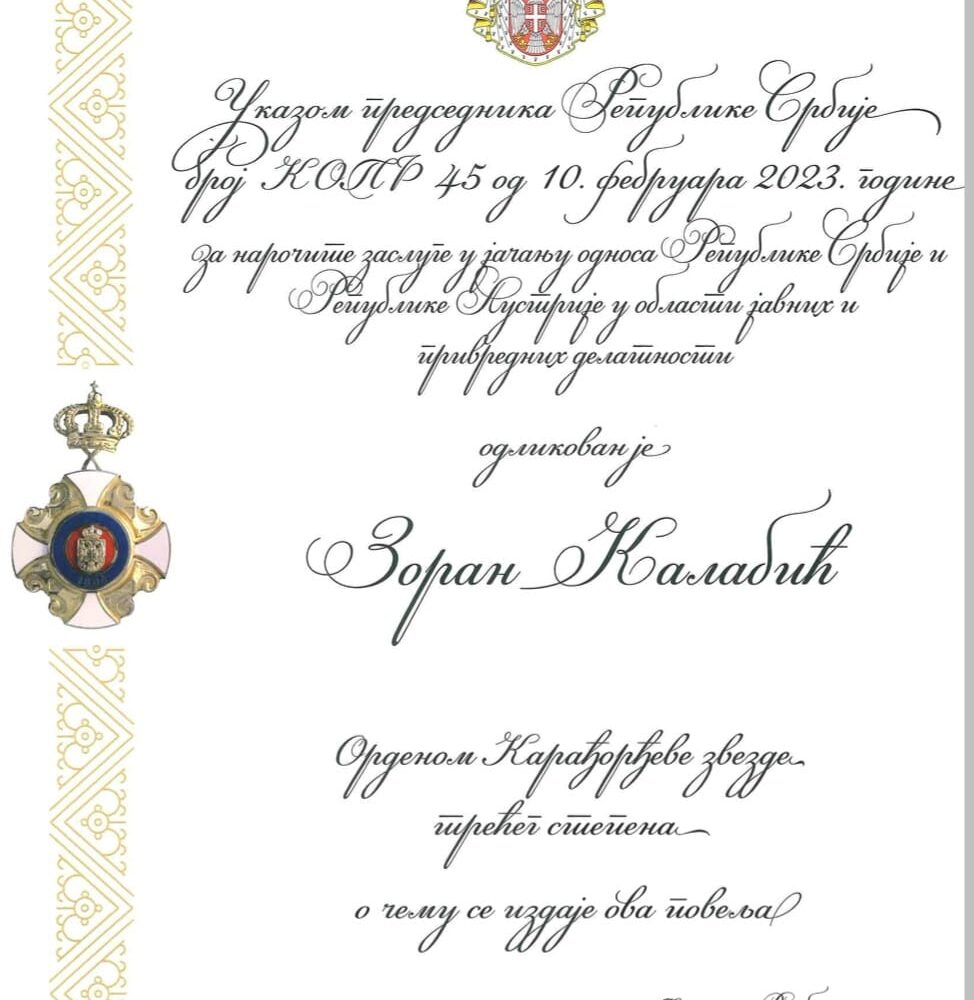 Указом председника Републике Србије
број КОПР 45 од 10. фебруара 2023. године
за нарочите заслуге у јачању односа Републике Србије и
Републике Аустрије у области јавних и
привредних делатности
одликован је
Зоран Калабић
Орденом Карађорђеве звезде
трећег степена
о чему се издаје ова повеља